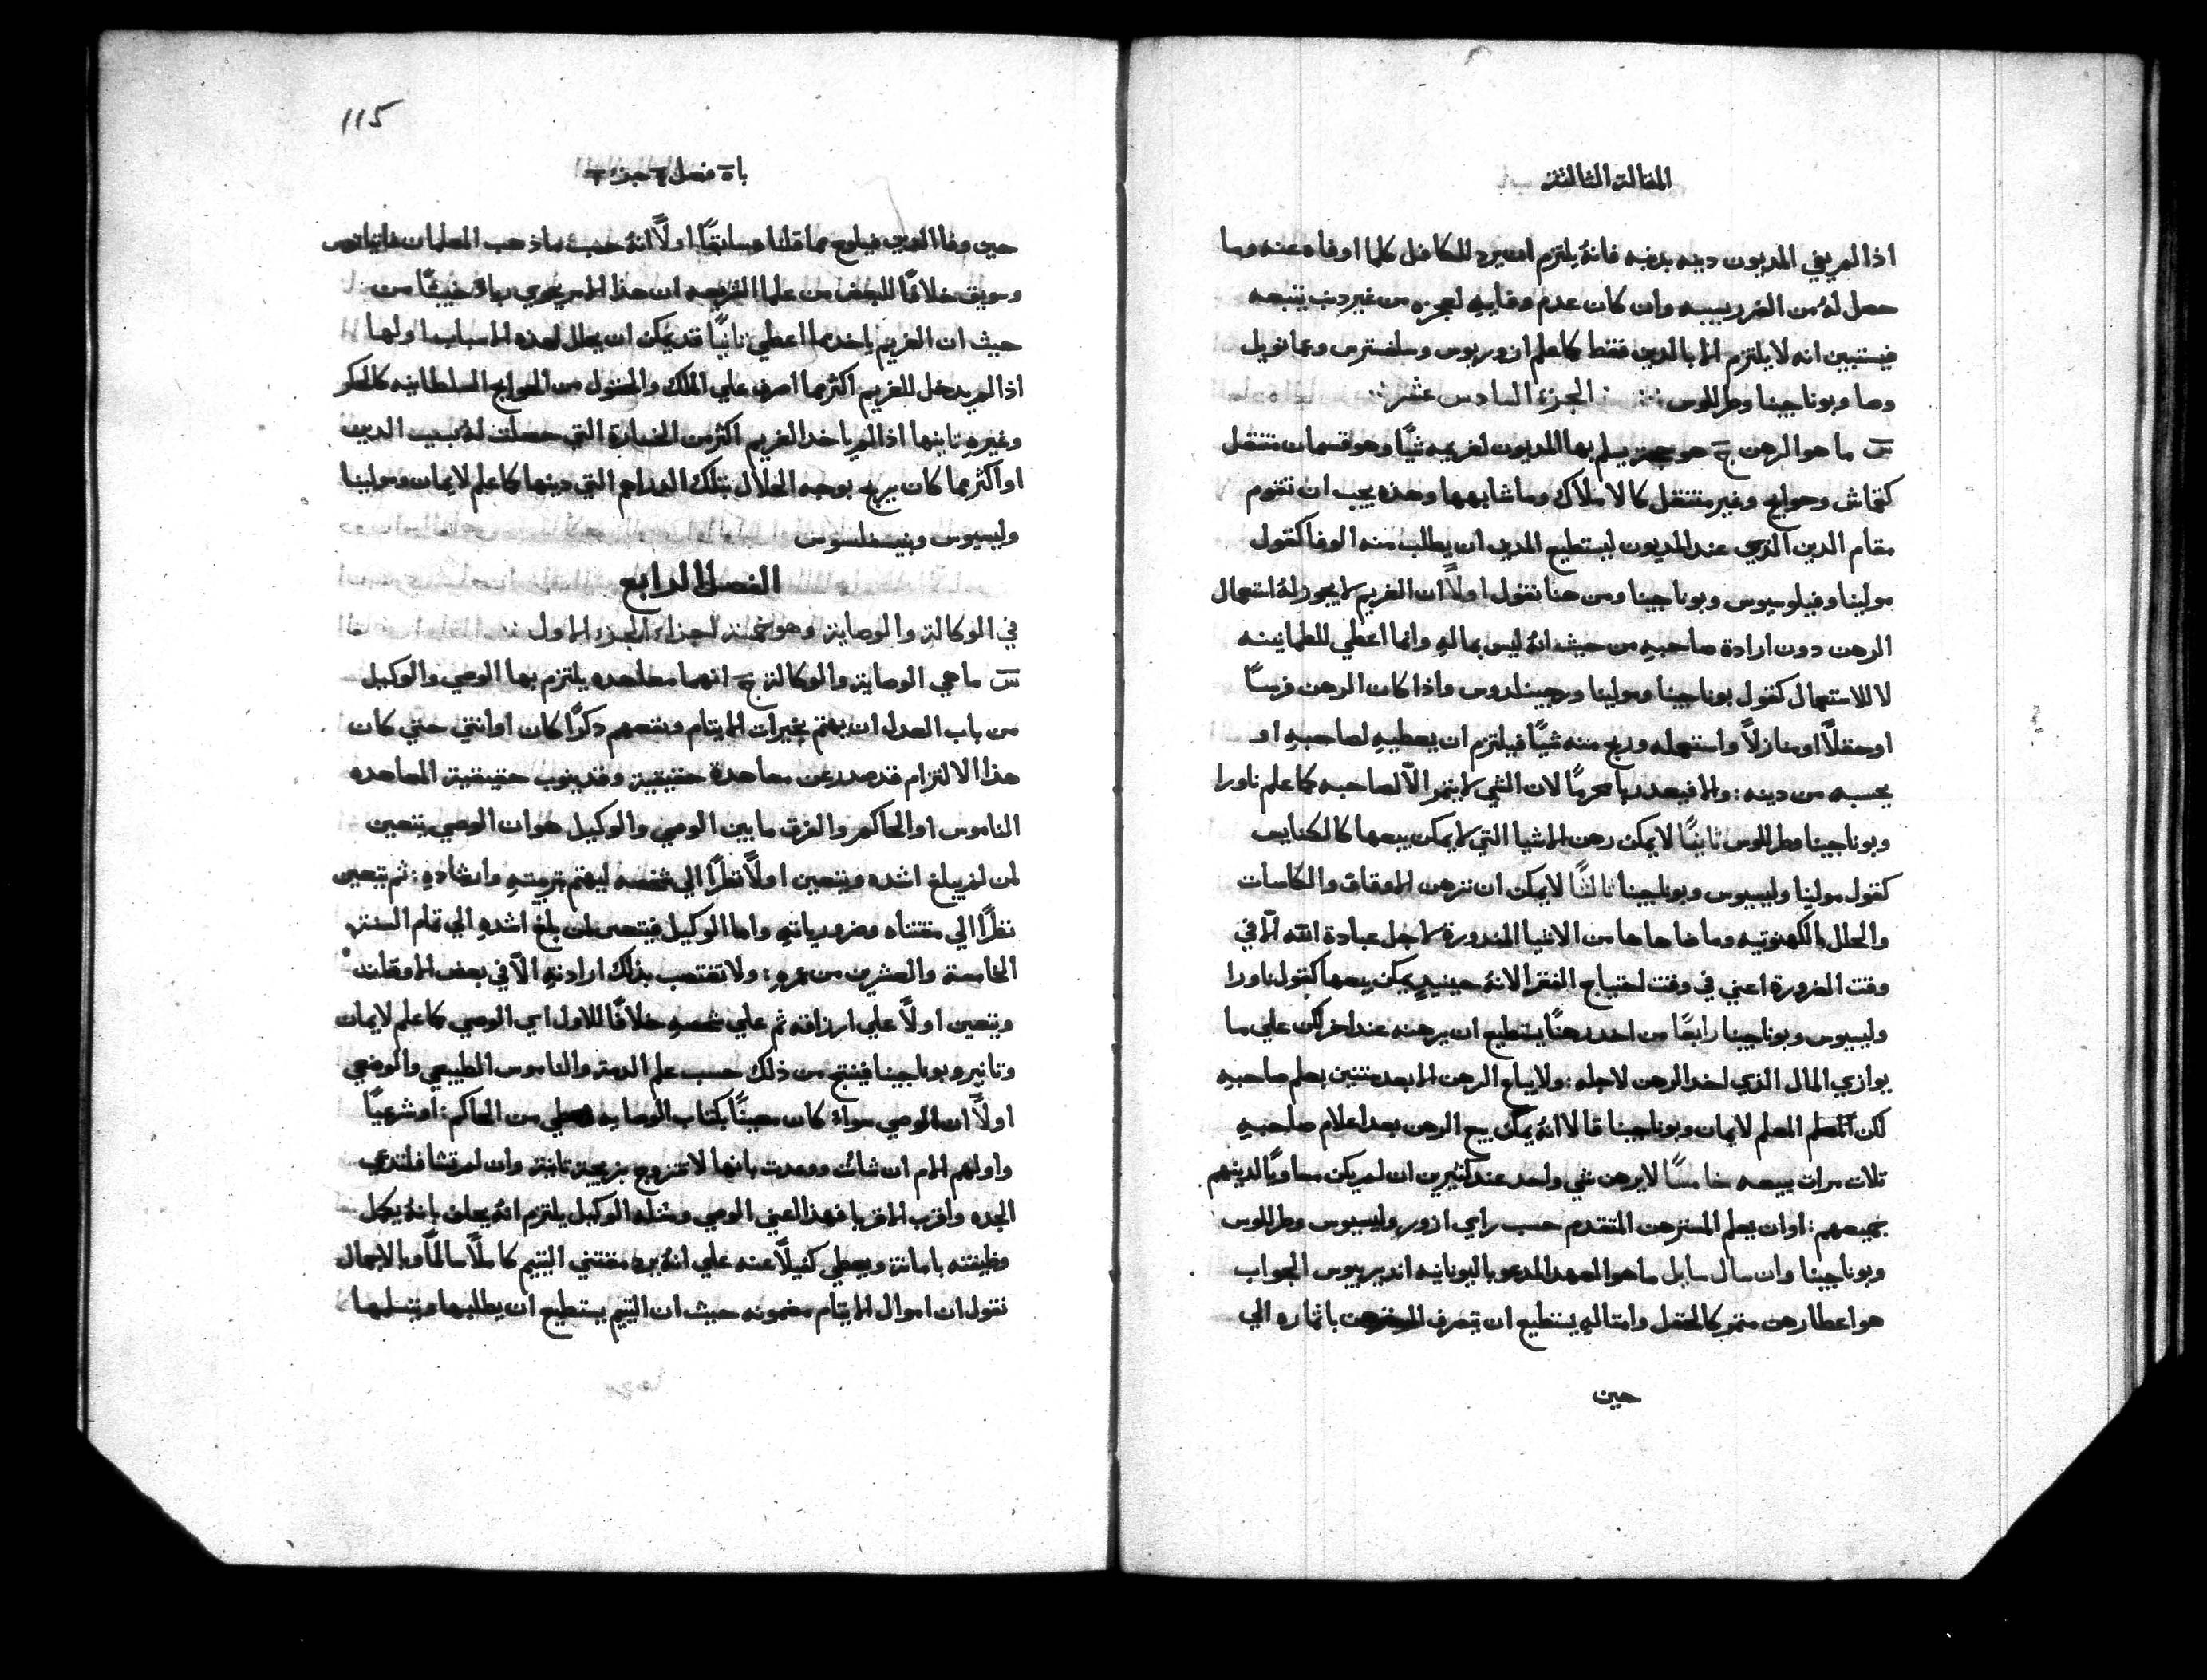 المقالة الثالثة
اذا لم يفي المديون دينه بدنبه فانهُ يلتزم ان يرد للكافل كلما اوفاه عنه وما
حصل لهُ من الضرر بسببه وان كان عدم وفايهِ لعجزهِ من غير دنب يتبعه
فيستبين انه لا يلتزم الا بالدين فقط كما علم ازوريوس وسلفسترس وعمانويل
وصا وبوناجينا وطرللوس ∴ الجزء السادس عشر ∴
س ما هو الرهن ج هو يسلم بها المديون لغريمه شيًا وهو قسمان متنقل
كقماش وحوايج وغير متنقل كالاملاك وما شابهها وهذه يجب ان تقوم
مقام الدين الذي عند المديون ليستطيع المدين ان يطلب منه الوفا كقول
مولينا وفيلوسيوس وبوناجينا ومن هنا نقول اولاً ان الغريم لا يجوز لهُ استعمال
الرهن دون ارادة صاحبهِ من حيث انهُ ليس بمالهِ وانما اعطي للطمانينه
لا للاستعمال كقول بوناجينا ومولينا ورجيينلدوس واذا كان الرهن فرسًا
او حقلاً او منازلاً واستعمله وربح منه شيًا فيلتزم ان يعطيهِ لصاحبهِ او
يحسبه من دينه : والا فيعد ربا محرمًا لان الشي لا يثمر الاّ لصاحبه كما علم ناورا
وبوناجينا وطرللوس ثانيًا لا يمكن رهن الاشيا التي لا يمكن بيعها كالكنايس
كقول مولينا وليسيوس وبوناجينا ثالثًا لا يمكن ان ترهن الاوقاف والكاسات
والحلل الكهنوتيه وما ضاهاها من الاشيا المندورة لاجل عبادة الله الا في
وقت الضرورة اعني في وقت احتياج الفقرا لانهُ حينيدٍ يمكن بيعها كقول ناورا
وليسيوس وبوناجينا رابعًا من اخد رهنًا يستطيع ان يرهنه عند اخر لكن علي ما
يوازي المال الذي اخد الرهن لاجله : ولا يباع الرهن الا بعد سنتين بعلم صاحبهِ
لكن المعلم لايمان وبوناجينا قالا انهُ يمكن بيع الرهن بعد اعلام صاحبهِ
تلات مرات ببيعه خامسًا لا يرهن شي واحد عند كثيرين ان لم يكن مساويًا لدينهم
جميعهم : او ان يعلم المسترهن المتقدم حسب راي ازور وليسيوس وطرللوس
وبوناجينا وان سال سايل ما هو العهد المدعو باليونانيه انديريسيوس الجواب
هو اعطا رهن مثمر كالحقل وامثالهِ يستطيع ان يتصرف المسترهن باثماره الي
حين
115
باة فصل جزء
حين وفا الدين فيلوح مما قلنا سابقًا اولاً انهُ حسب ما ذهب المعلمان
وسويق خلافًا للبعض من علما الشريعه ان هذا الامر يحوي رباءً خبيثًا من
حيث ان الغريم ياخد مما اعطي ثانيًا قد يمكن ان يحلل لهذه الاسباب اولها
اذا لم يدخل للغريم اكثر مما اصرف علي الملك والحقول من الحوايج السلطانيه كالحكر
وغيرهِ ثانيها اذا لم ياخد الغريم اكثر من الخسارة التي حصلت لهُ بسبب الدين
او اكثر مما كان يربح بوجه الحلال بتلك الدراهم التي دينها كما علم لايمان ومولينا
وليسيوس وبنيسفلسوس
الفصل الرابع
في الوكالة والوصاية وهو خمسة اجزاء الجزء الاول ∴
س ما هي الوصاية والوكالة ج انهما معاهده يلتزم بها الوصي والوكيل
من باب العدل ان يهتم بخيرات الايتام ونفعهم دكرًا كان او انتي حتي كان
هذا الالتزام قد صدر عن معاهدة حقيقية وقد ينوب حقيقية المعاهده
الناموس او الحاكم والفرق ما بين الوصي والوكيل هو ان الوصي يتعين
لمن لم يبلغ اشده ويتعين اولاً نظرًا الي شخصه ليهتم بتربيتهِ وارشادهِ : ثم يتعين
نظرًا الي مقتناه وضرورياتهِ واما الوكيل فيتعين لمن بلغ اشدهِ الي تمام السنة
الخامسة والعشرين من عمرهِ : ولا تغتصب بذلك ارادتهِ الاّ في بعض الاوقات
ويتعين اولاً علي ارزاقه ثم علي شخصهِ خلافًا للاول اي الوصي كما علم لايمان
وتانير وبوناجينا فينتج من ذلك حسب علم الدمة والناموس الطبيعي والوضعي
اولاً ان الوصي سواءً كان معينًا بكتاب الوصايه من الحاكم : او شرعيًا
واولهم الام ان شات ووعدت بانها لا تتزوج بزيجة ثانية وان لم تشا فلتدعي
الجده واقرب الاقربا فهذا اعني الوصي ومثله الوكيل يلتزم انهُ يحلف بانهُ يكمل
وظيفته بامانة ويعطي كفيلاً عنه علي انهُ يرد مقتني اليتيم كاملاً سالمًا وبالاجمال
نقول ان اموال الايتام مضمونه حيث ان اليتيم يستطيع ان يطلبها ويتسلمها